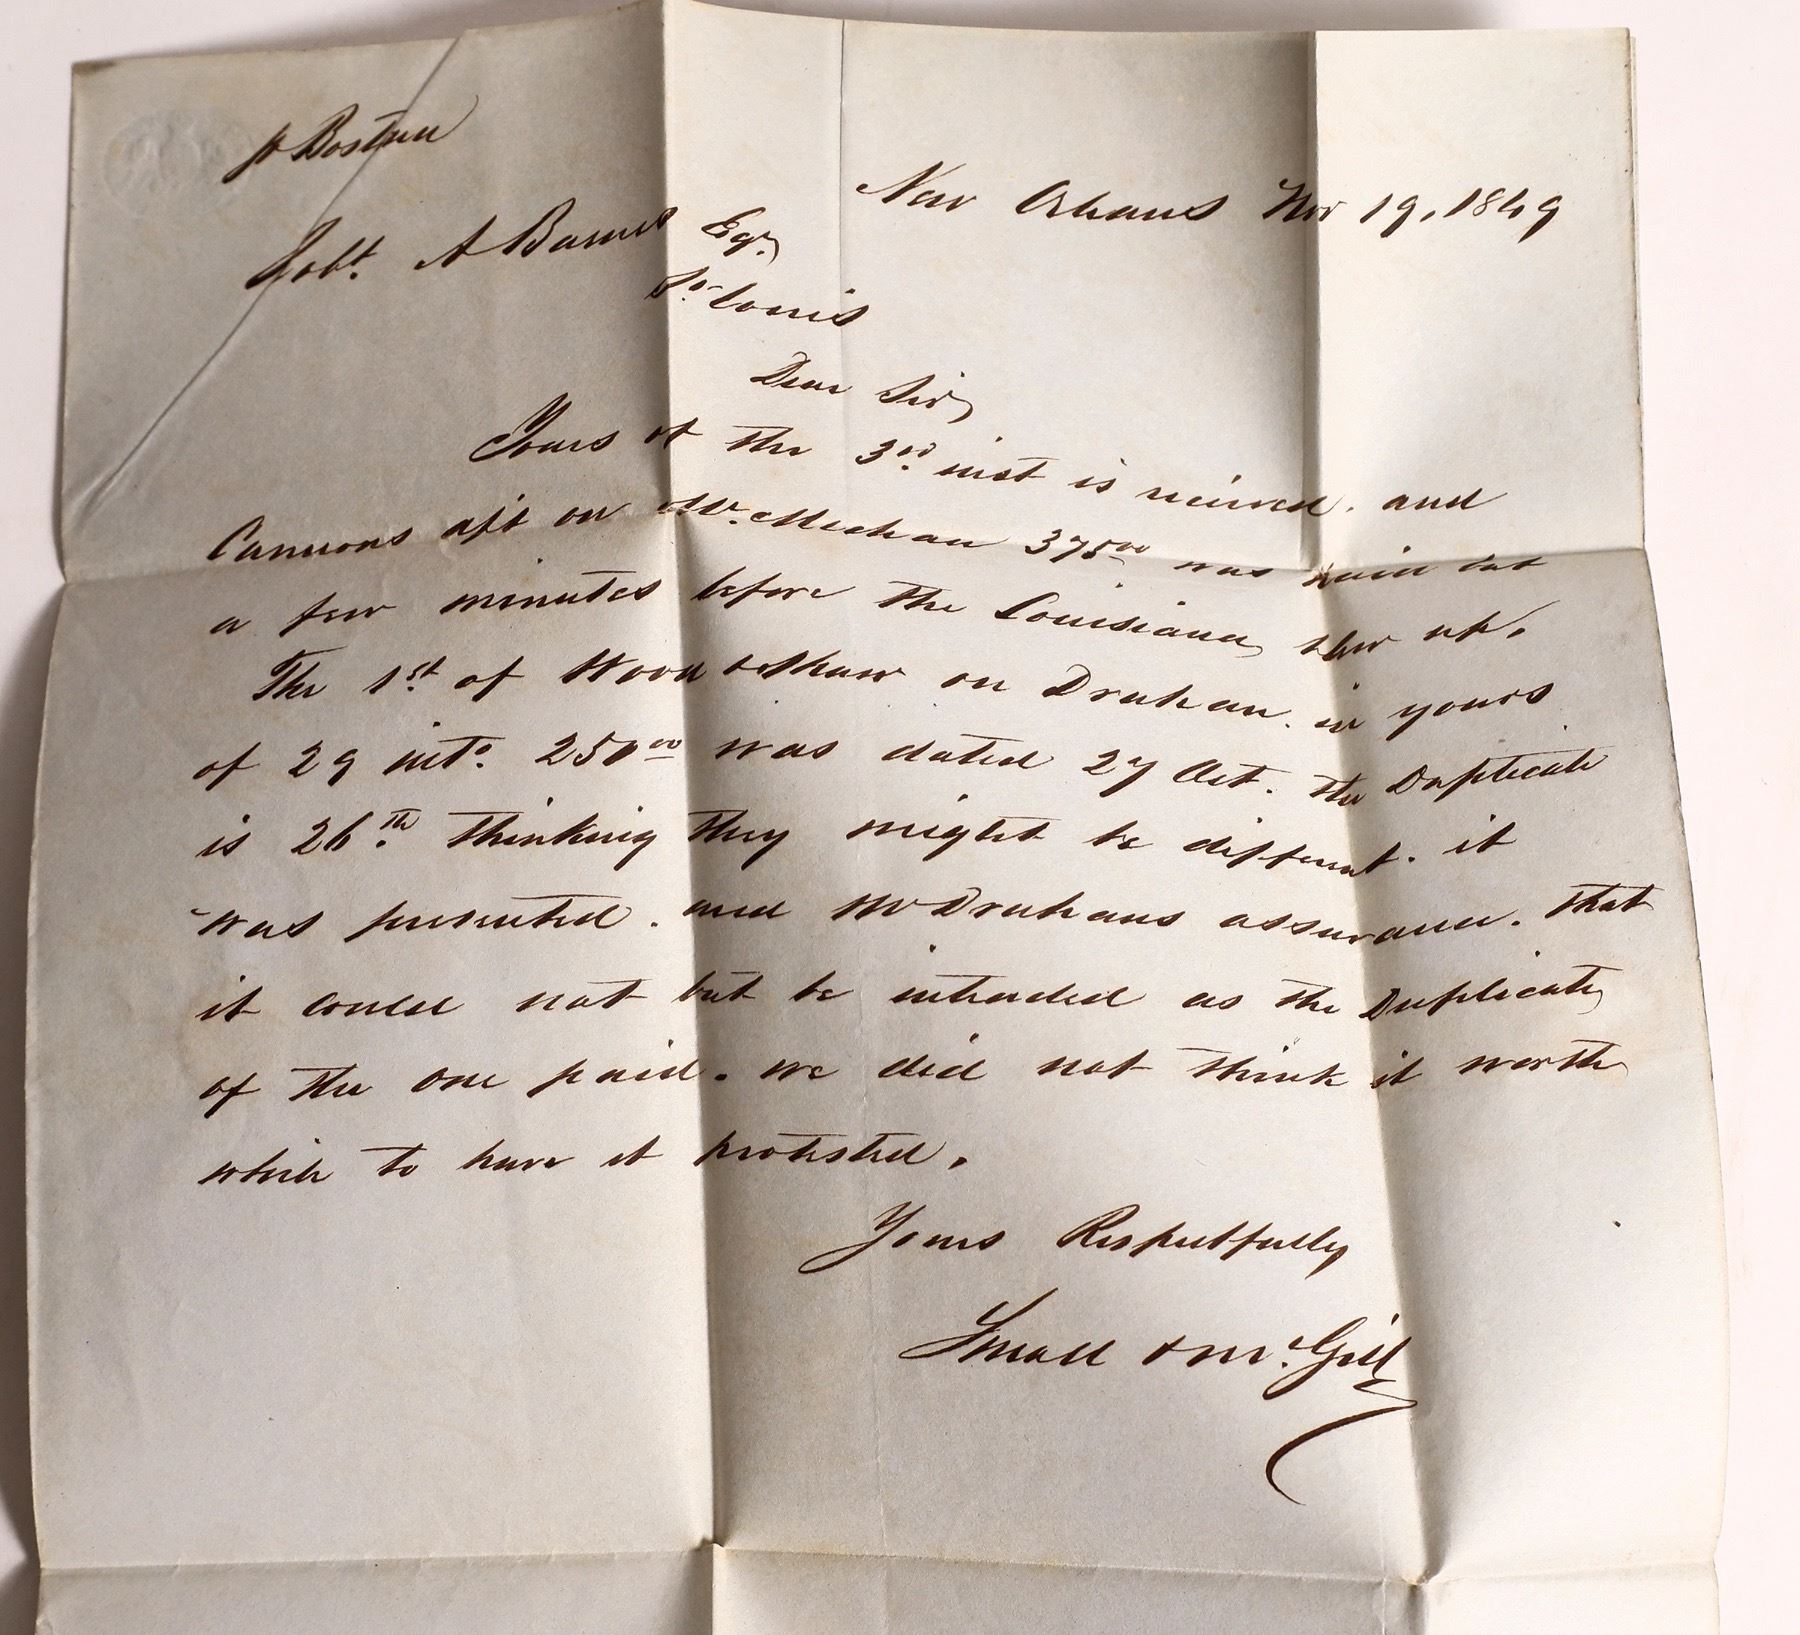 pr Bostona
New Orleans Nov 19, 1849
Robt. A Barnes Esqr.
St. Louis
Dear Sir,
Yours of the 3rd. inst is received. and
Cannons dft on Mr. Meehan 375.00 was paid but
a few minutes before the Louisiana blew up.
The 1st. of Wood & Shaw on Drehan. in yours
of 29 ulto. 250.00 was dated 27 Oct. the Duplicate
is 26.th thinking they might be different. it
was presented. and Mr Drehans assurance. that
it could not but be intended as the Duplicate
of the one paid. we did not think it worth
while to have it protested.
Yours Respectfully
Small & McGill